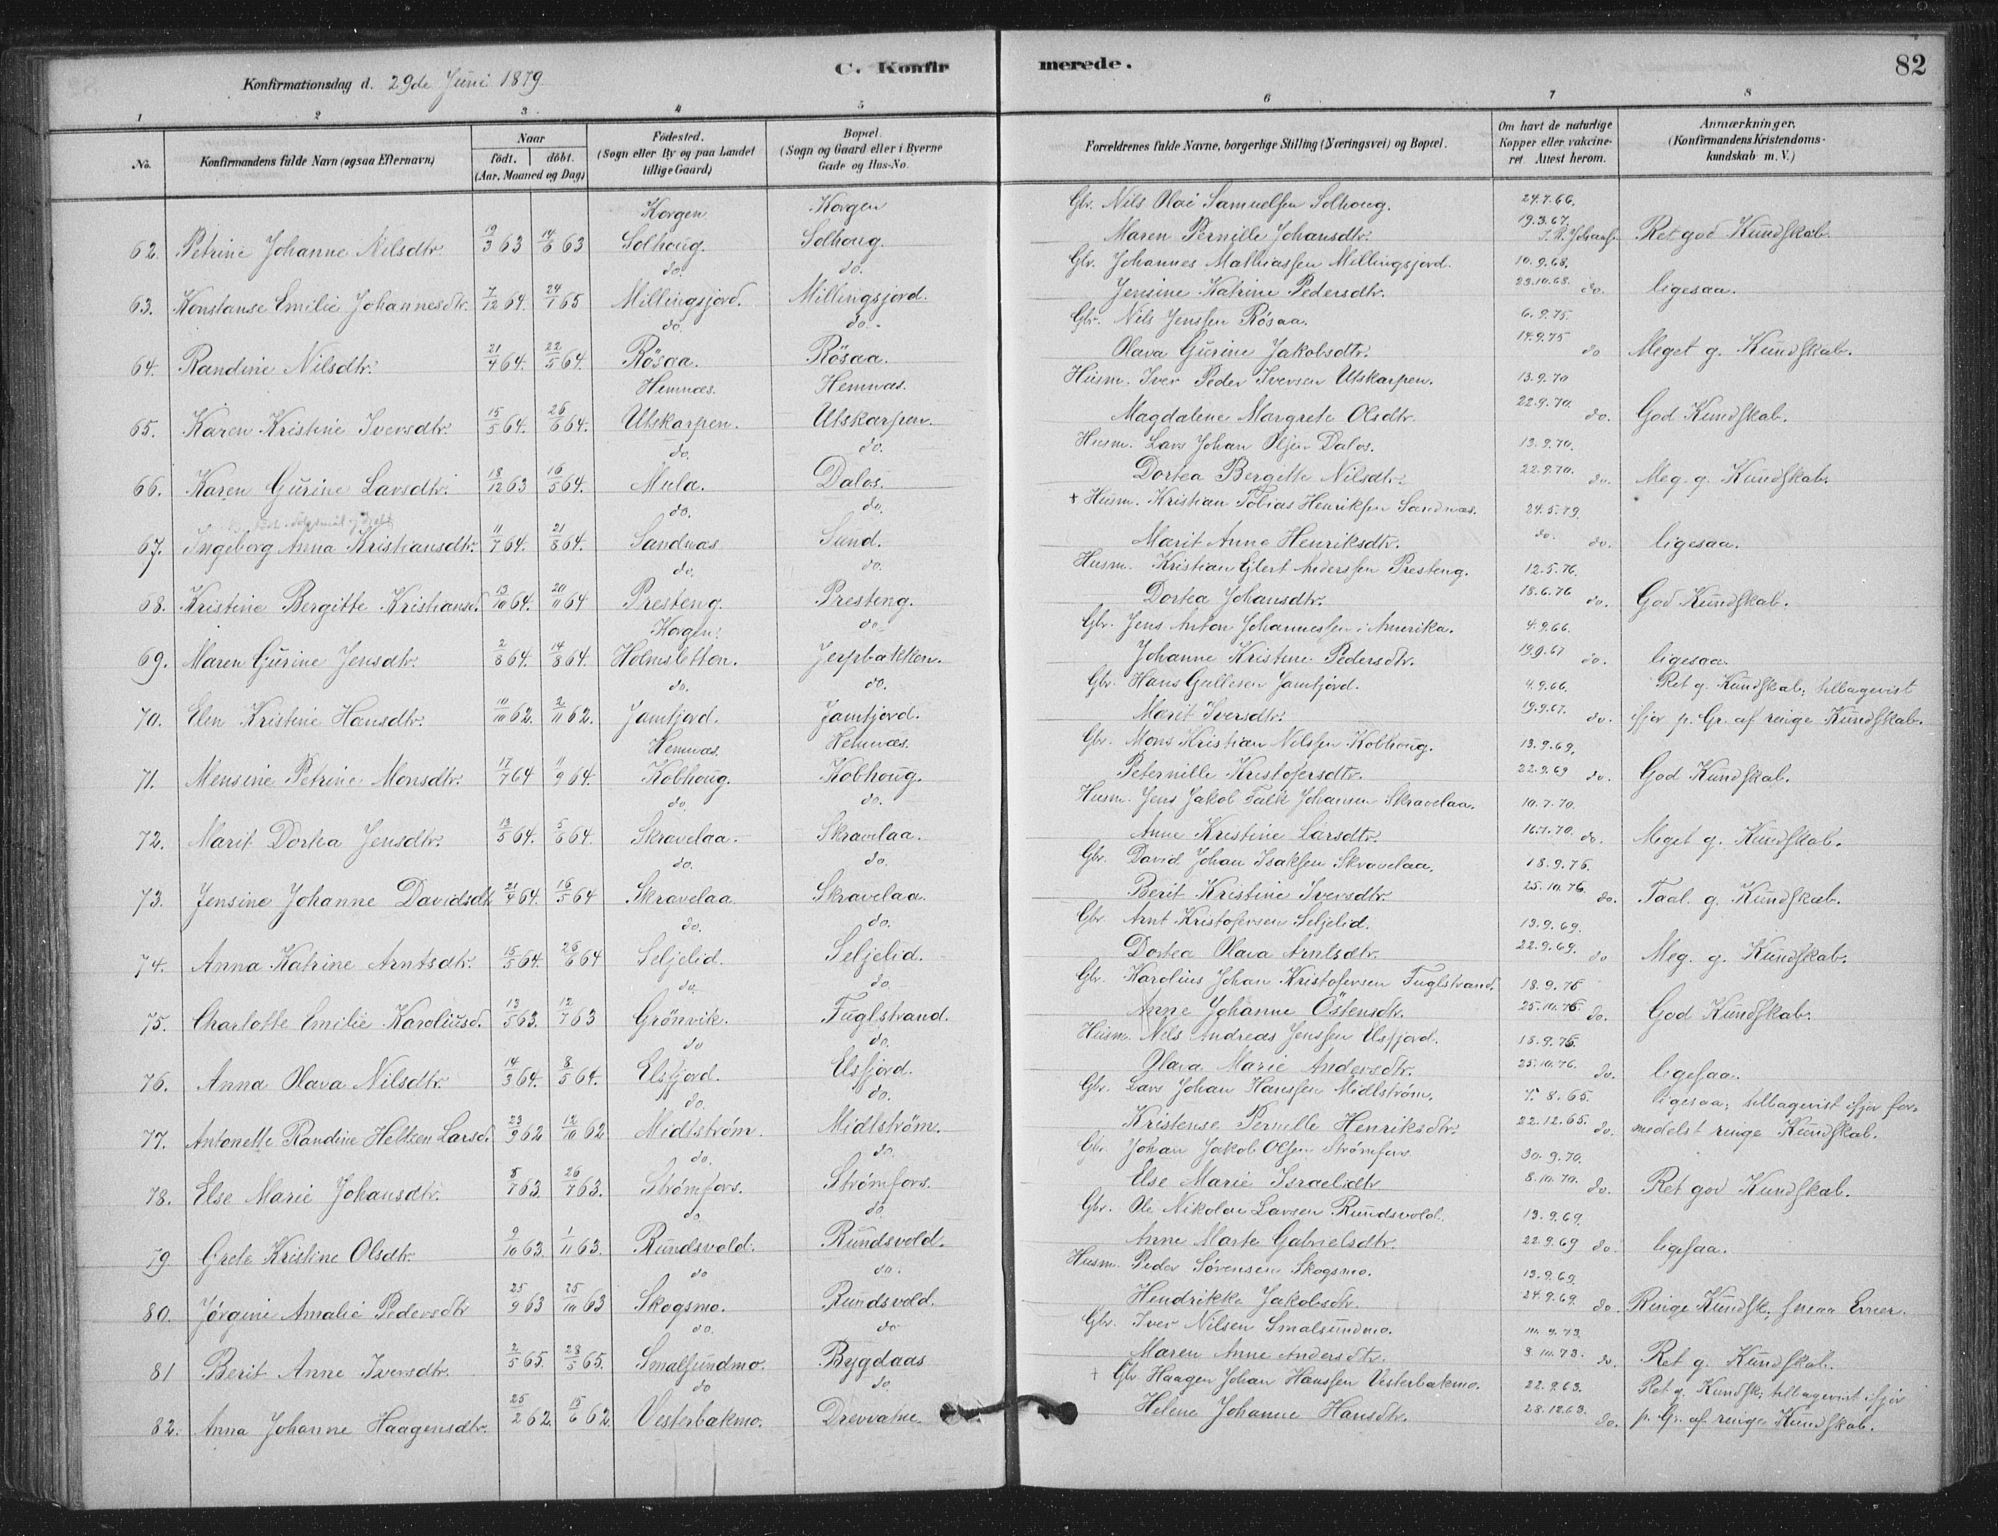 Konfirmationsdag d. 29de Juni 1879.
C. Konfirmerede.
82
1 2 3 4 5 6 7 8
No.
Konfirmandens fulde Navn (ogsaa Efternavn)
Naar
født. døbt.
(Aar, Maaned og Dag)
Fødested.
(Sogn eller By og paa Landet tillige Gaard)
Bopæl.
(Sogn og Gaard eller i Byerne Gade og Hus-No.
Forældrenes fulde Navne, borgerlige Stilling (Næringsvei) og Bopæl.
Om havt de naturlige Kopper eller vakcineret. Attest herom.
Anmærkninger.
(Konfirmandens Kristendomskundskab m. V.)
Korgen Korgen Gbr. Nils Olai Samuelsen Solhoug. 24.7.66.
62. Petrine Johanne Nilsdtr. 19/3 63 14/6 63 Solhoug. Solhoug. Maren Pernille Johansdtr. 19.3.67. Ret god Kundskab.
do. do. Gbr. Johannes Mathiassen Millingsjord. 10.9.68.
63. Konstanse Emilie Johannesdtr. 7/12 64. 24/1 65 Millingsjord. Millingsjord. Jensine Katrine Pedersdtr. 23.10.68. do. ligesaa.
do. do. Gbr. Nils Jenssen Røsaa. 6.9.75
64. Randine Nilsdtr. 21/4 64. 22/5 64. Røsaa. Røsaa. Olava Gurine Jakobsdtr. 14.9.75 do Meget g. Kundskab.
Hemnæs. Hemnæs. Husm. Iver Peder Iversen Utskarpen. 13.9.70
65. Karen Kristine Iversdtr. 15/5 64. 26/6 64. Utskarpen. Utskarpen. Magdalene Margrete Olsdtr. 22.9.70. do. God Kundskab.
do. do. Husm. Lars Johan Olsen Dalos. 13.9.70.
66. Karen Gurine Larsdtr. 18/12 63 16/5 64. Mula. Dalos. Dortea Bergitte Nilsdtr. 22.9.70. do. Meg. g. Kundskab.
do. do. + Husm. Kristian Tobias Henriksen Sandnæs. 24.5.79.
67. Ingeborg Anna Kristiansdtr. 11/7 64. 21/8 64. Sandnæs Sund. Marit Anne Henriksdtr. do. do. ligesaa.
do. do. Husm. Kristian Ejlert Anderssen Presteng. 12.5.76.
68. Kristine Bergitte Kristiansd. 13/10 64. 20/11 64 Presteng. Presteng. Dortea Johansdtr. 18.6.76 do. God Kundskab.
Korgen. do. Gbr. Jens Anton Johannessen i Amerika. 4.9.66.
69. Maren Gurine Jensdtr. 2/8 64. 14/8 64. Holmsletton. Jerpbakken. Johanne Kristine Pedersdtr. 19.9.67 do. ligesaa.
do. do. Gbr. Hans Gullesen Jamtjord. 4.9.66. Ret g. Kundskab; tilbagevist
70. Elen Kristine Hansdtr. 10/10 62. 2/11 62. Jamtjord. Jamtjord. Marit Iversdtr. 19.9.67. do. ifjor p. Gr. af ringe Kundskab.
Hemnæs. Hemnæs. Gbr. Mons Kristian Nilssen Kobhoug. 13.9.69.
71. Mensine Petrine Monsdtr. 17/7 64 11/9 64. Kobhoug. Kobhoug. Peternille Kristofersdtr. 22.9.69 do. God Kundskab.
do. do. Husm. Jens Jakob Falk Johansen Skravelaa. 10.7.70.
72. Marit Dortea Jensdtr. 13/5 64. 5/6 64. Skravelaa. Skravelaa. Anne Kristine Larsdtr. do. Meget g. Kundskab.
do. do. Gbr. David Johan Isaksen Skravelaa. 18.9.76.
73. Jensine Johanne Davidsdt. 21/4 64. 16/5 64 Skravelaa. Skravelaa. Berit Kristine Iversdtr. 25.10.76. do. Taal. g. Kundskab.
do. do. Gbr Arnt Kristofersen Seljelid. 13.9.69.
74. Anna Katrine Arntsdtr. 15/5 64. 26/6 64 Seljelid. Seljelid. Dortea Olava Arntsdtr. 22.9.69. do Meg. g. Kundskab.
do. do. Gbr. Karolius Johan Kristofersen Fuglstrand. 18.9.76
75. Charlotte Emilie Karoliusd. 13/5 63. 12/7 63 Grønvik. Fuglstrand. Anne Johanne Östensdtr. 25.10.76. do. God Kundskab.
do do. Husm. Nils Andreas Jenssen Elsfjord. 18.9.76
76. Anna Olava Nilsdtr. 14/3 64. 8/5 64. Elsfjord. Elsfjord. Olava Marie Andersdtr. 25.10.76. do. ligesaa.
do. do. Gbr. Lars Johan Hanssen Midtstrøm. 7.8.65. ligesaa; tilbagevist ifjor for-
77. Antonette Randine Heltzen Larsd. 23/9 62 12/10 62 Midtstrøm. Midtstrøm. Kristense Pernille Henriksdtr. 22.12.65. do. medelst ringe Kundskab.
do. do. Gbr. Johan Jakob Olsen Strømfors. 30.9.70.
78. Else Marie Johansdtr. 8/7 63. 26/7 63. Strømfors. Strømfors. Else Marie Israelsdtr 8.10.70. do. Ret god Kundskab.
do. do Gbr. Ole Nikolai Larsen Rundsvold. 13.9.69.
79 Grete Kristine Olsdtr. 9/10 63. 1/11 63. Rundsvold. Rundsvold. Anne Marte Gabrielsdtr. 22.9.69 do. ligesaa.
do do. Husm. Peder Sørensen Skogsmo. 13.9.69.
80. Jørgine Amalie Pedersdtr 25/9 63 25/10 63 Skogsmo. Rundsvold. Hendrikke Jakobsdtr. 24.9.69. do. Ringe Kundsk, smaa Evner.
do. do Gbr. Iver Nilsen Smalsundmo.
81 Berit Anne Iversdtr. 2/5 65. 28/5 65. Smalsundmo. Bygdaas Maren Anne Andersdtr. 8.10.73. do. Ret g. Kundskab.
do do. + Gbr Haagen Johan Hanssen Vesterbakmo. 22.9.63. Ret g. Kundsk; tilbagevist ifjor
82. Anna Johanne Haagensdtr. 25/2 62. 15/6 62. Vesterbakmo. Drevvatne. Helene Johanne Hansdtr. 28.12.63. do. p. Gr. af ringe Kundskab.